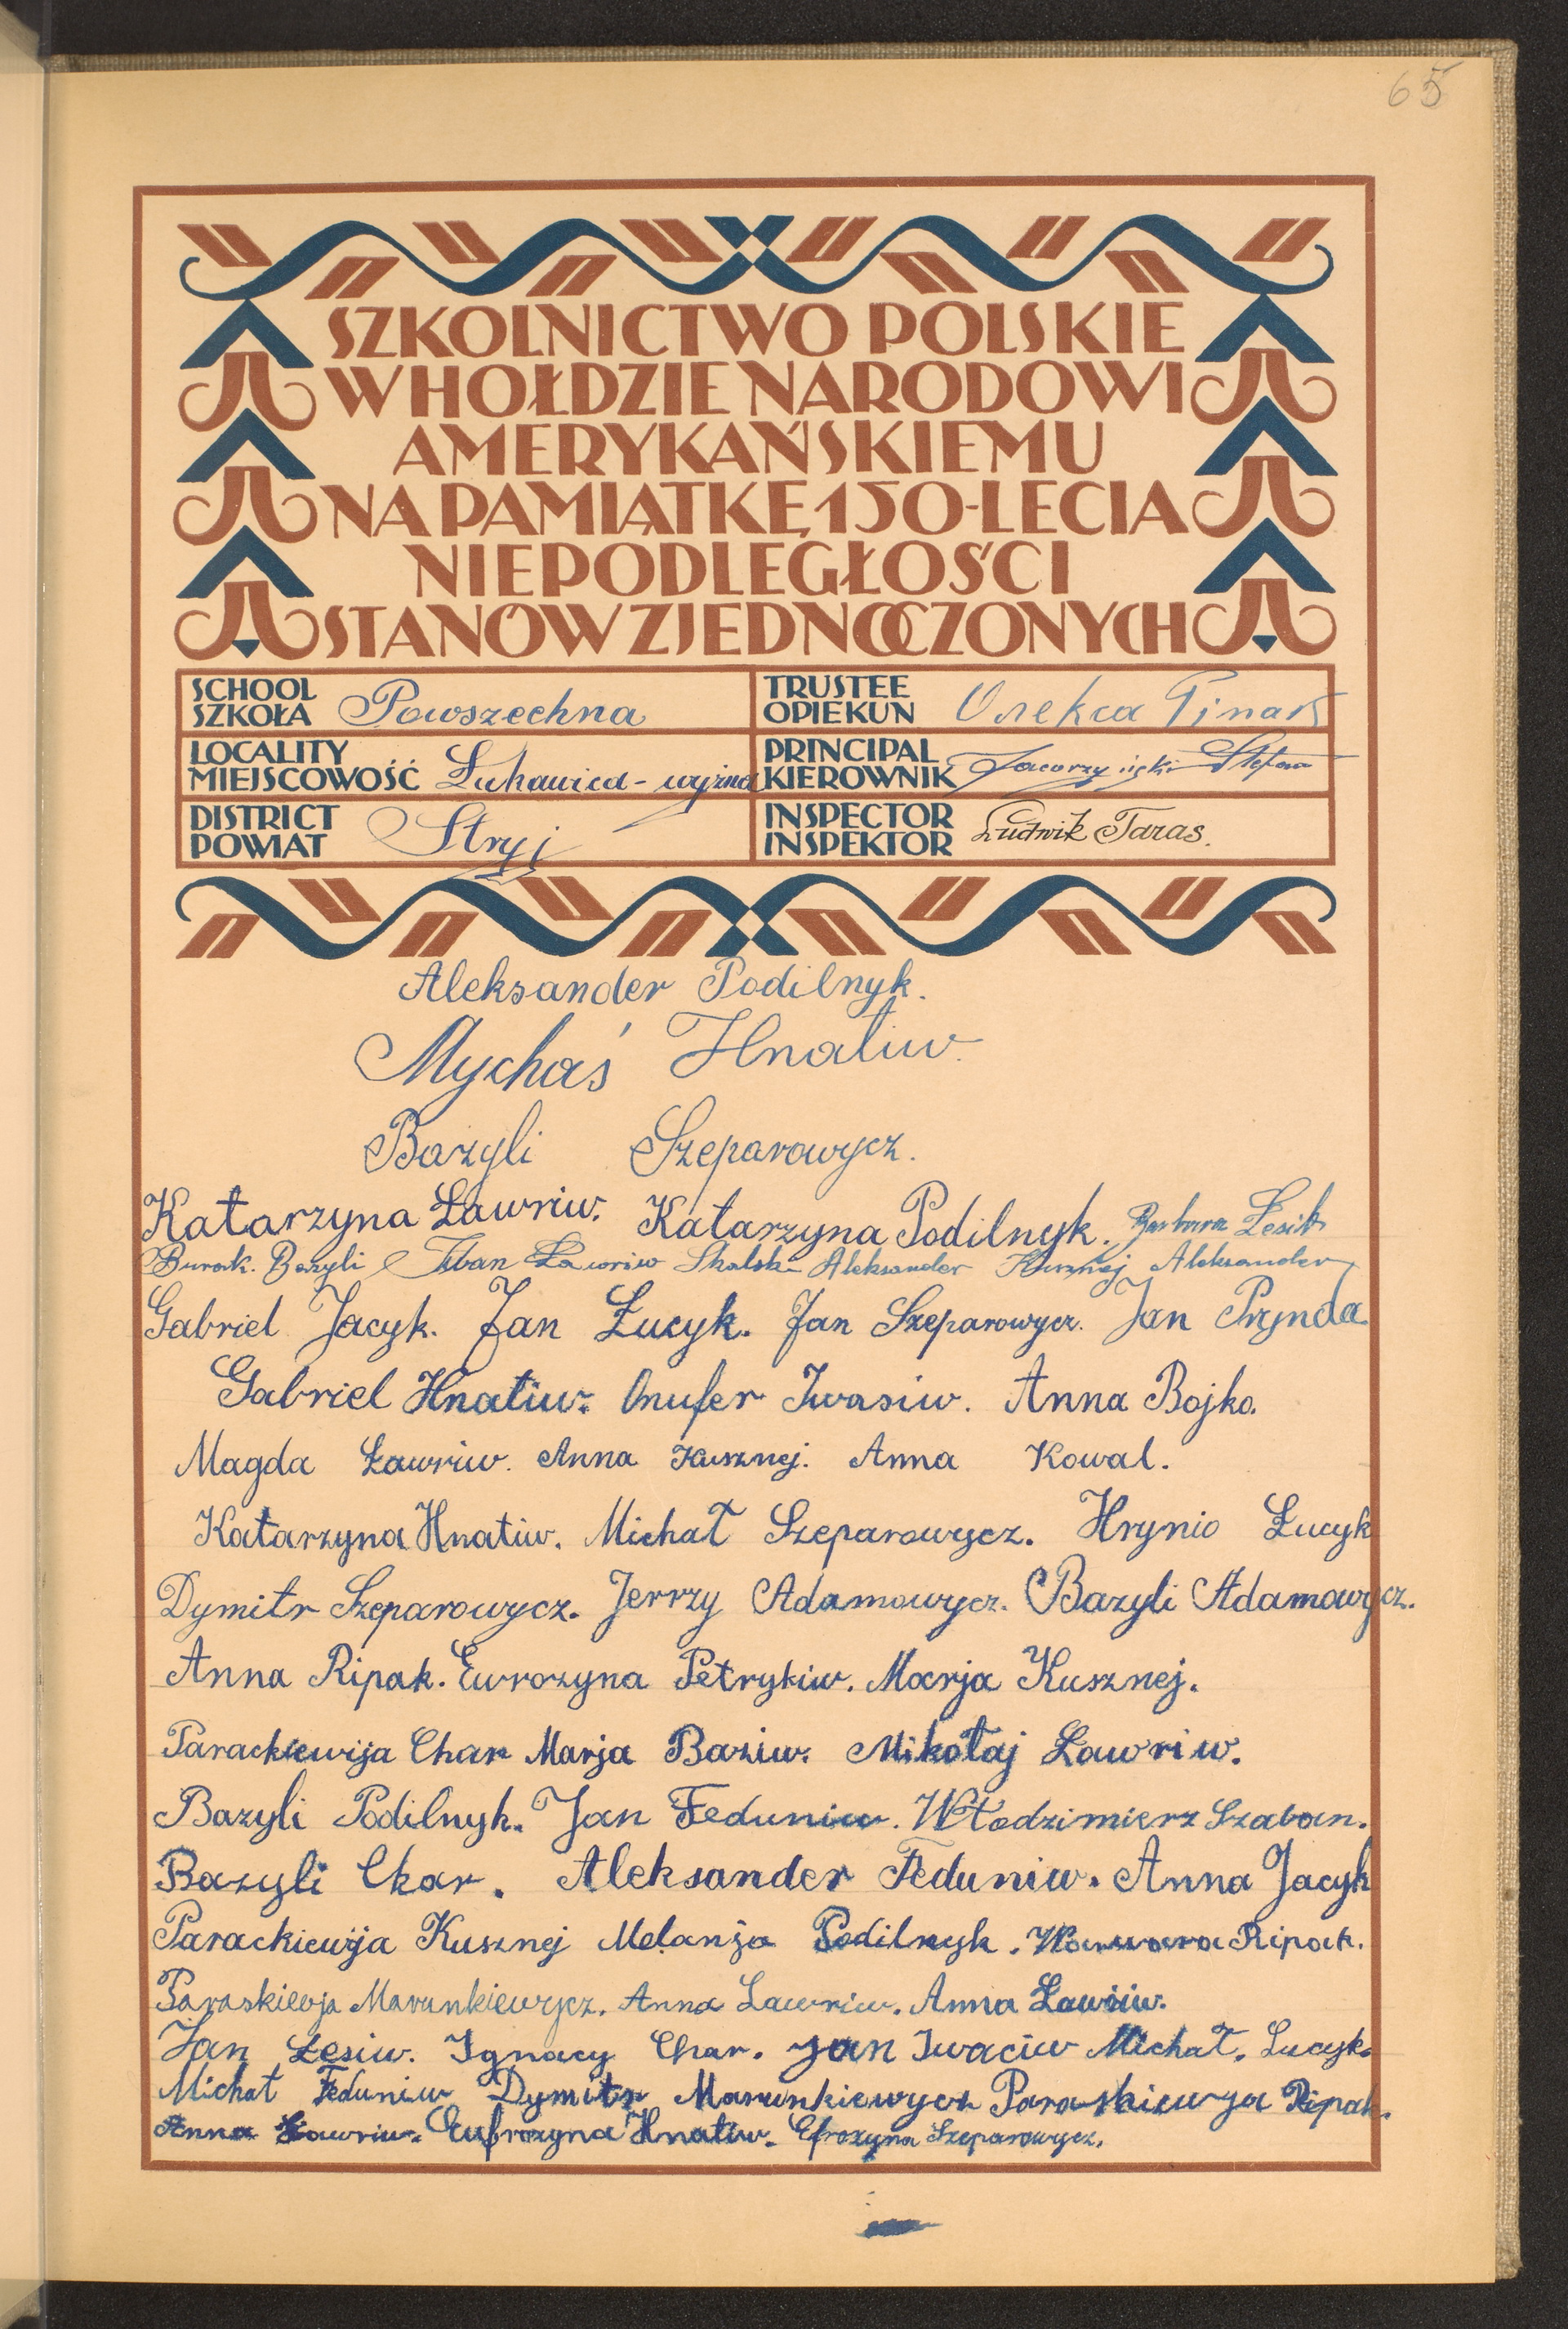 65
SZKOLNICTWO POLSKIE
W HOŁDZIE NARODOWI
AMERYKAŃSKIEMU
NA PAMIĄTKĘ 150-LECIA
NIEPODLEGŁOŚCI
STANÓW ZJEDNOCZONYCH
SCHOOL
SZKOŁA Powszechna
TRUSTEE
OPIEKUN Олекса
LOCALITY
MIEJSCOWOŚĆ Łukawica-wyżna
PRINCIPAL
KIEROWNIK Stefan
DISTRICT
POWIAT Stryj
INSPECTOR
INSPEKTOR Ludwik Taras.
Aleksander Podilnyk.
Mychaś Hnatiw.
Bazyli Szeparowycz.
Katarzyna Ławriw. Katarzyna Podilnyk. Barbara Łesik
Burak. Bazyli Iwan Ławriw Skalski Aleksander Kusznej Aleksander
Gabriel Jacyk. Jan Łucyk. Jan Szeparowycz. Jan Prynda.
Gabriel Hnatiw. Onufer Iwasiw. Anna Bojko.
Magda Ławriw. Anna Kusznej. Anna Kowal.
Katarzyna Hnatiw. Michał Szeparowycz. Hrynio Łucyk
Dymitr Szeparowycz. Jerrzy Adamowycz. Bazyli Adamowycz.
Anna Ripak. Ewrozyna Petrykiw. Marja Kusznej.
Parackiewija Char Marja Baziw. Mikołaj Ławriw.
Bazyli Podilnyk. Jan Feduniw. Włodzimierz Szaban.
Bazyli Char. Aleksander Feduniw. Anna Jacyk
Parackiewija Kusznej Melanja Podilnyk. Warwara Ripak.
Paraskiewja Marunkiewycz. Anna Ławriw. Anna Ławriw.
Jan Łesiw. Ignacy Char. Jan Iwaciw Michał. Łucyk.
Michał Feduniw Dymitr Marunkiewycz Paraskiewja Ripak.
Anna Ławriw. Eufrozyna Hnatiw. Efrozyna Szeparowycz.